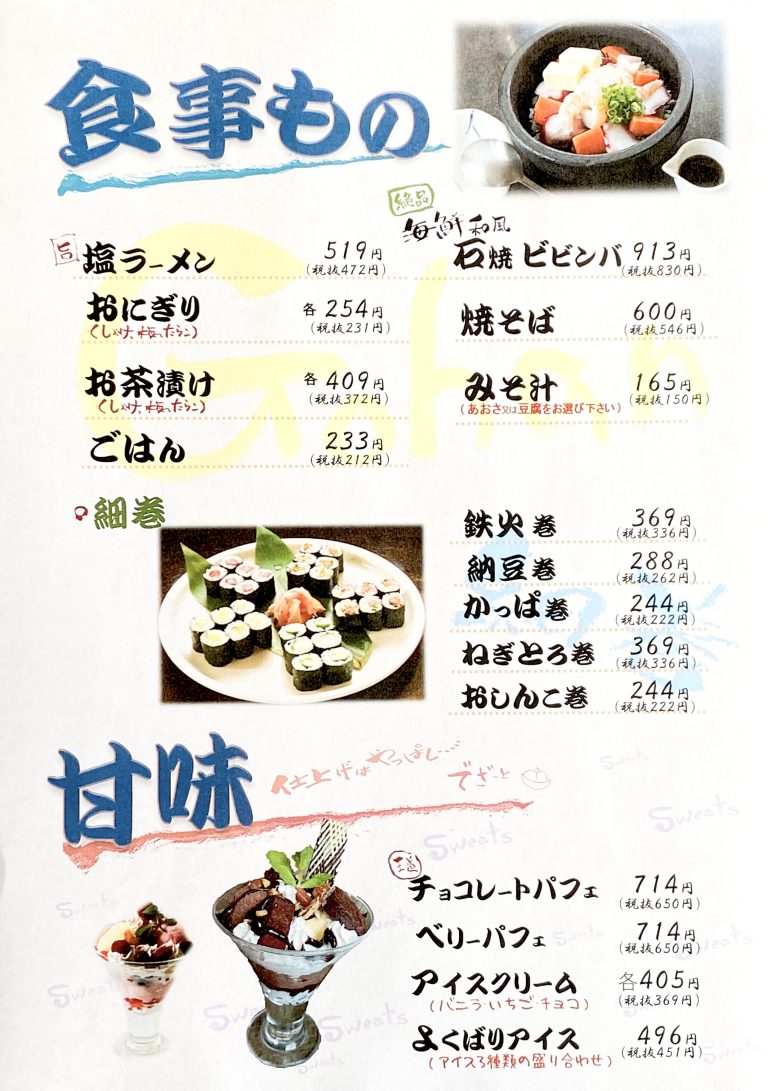 食事もの
Gohan
旨 塩ラーメン 519円
(税抜472円)
おにぎり 各254円
(しゃけ、梅、たらこ) (税抜231円)
お茶漬け 各409円
(しゃけ、梅、たらこ) (税抜372円)
ごはん 233円
(税抜212円)
絶品
海鮮和風
石焼ビビンバ 913円
(税抜830円)
焼そば 600円
(税抜546円)
みそ汁 165円
(あおさ又は豆腐をお選び下さい) (税抜150円)
細巻
鉄火巻 369円
(税抜336円)
納豆巻 288円
(税抜262円)
かっぱ巻 244円
(税抜222円)
ねぎとろ巻 369円
(税抜336円)
おしんこ巻 244円
(税抜222円)
甘味
仕上げはやっぱし…
でざーと
Sweets
Sweets
Sweets
Sweets
Sweets
Sweets
Sweets
Sweets
Sweets
Sweets
王道
チョコレートパフェ 714円
(税抜650円)
ベリーパフェ 714円
(税抜650円)
アイスクリーム 各405円
(バニラ・いちご・チョコ) (税抜369円)
よくばりアイス 496円
(アイス3種類の盛り合わせ) (税抜451円)